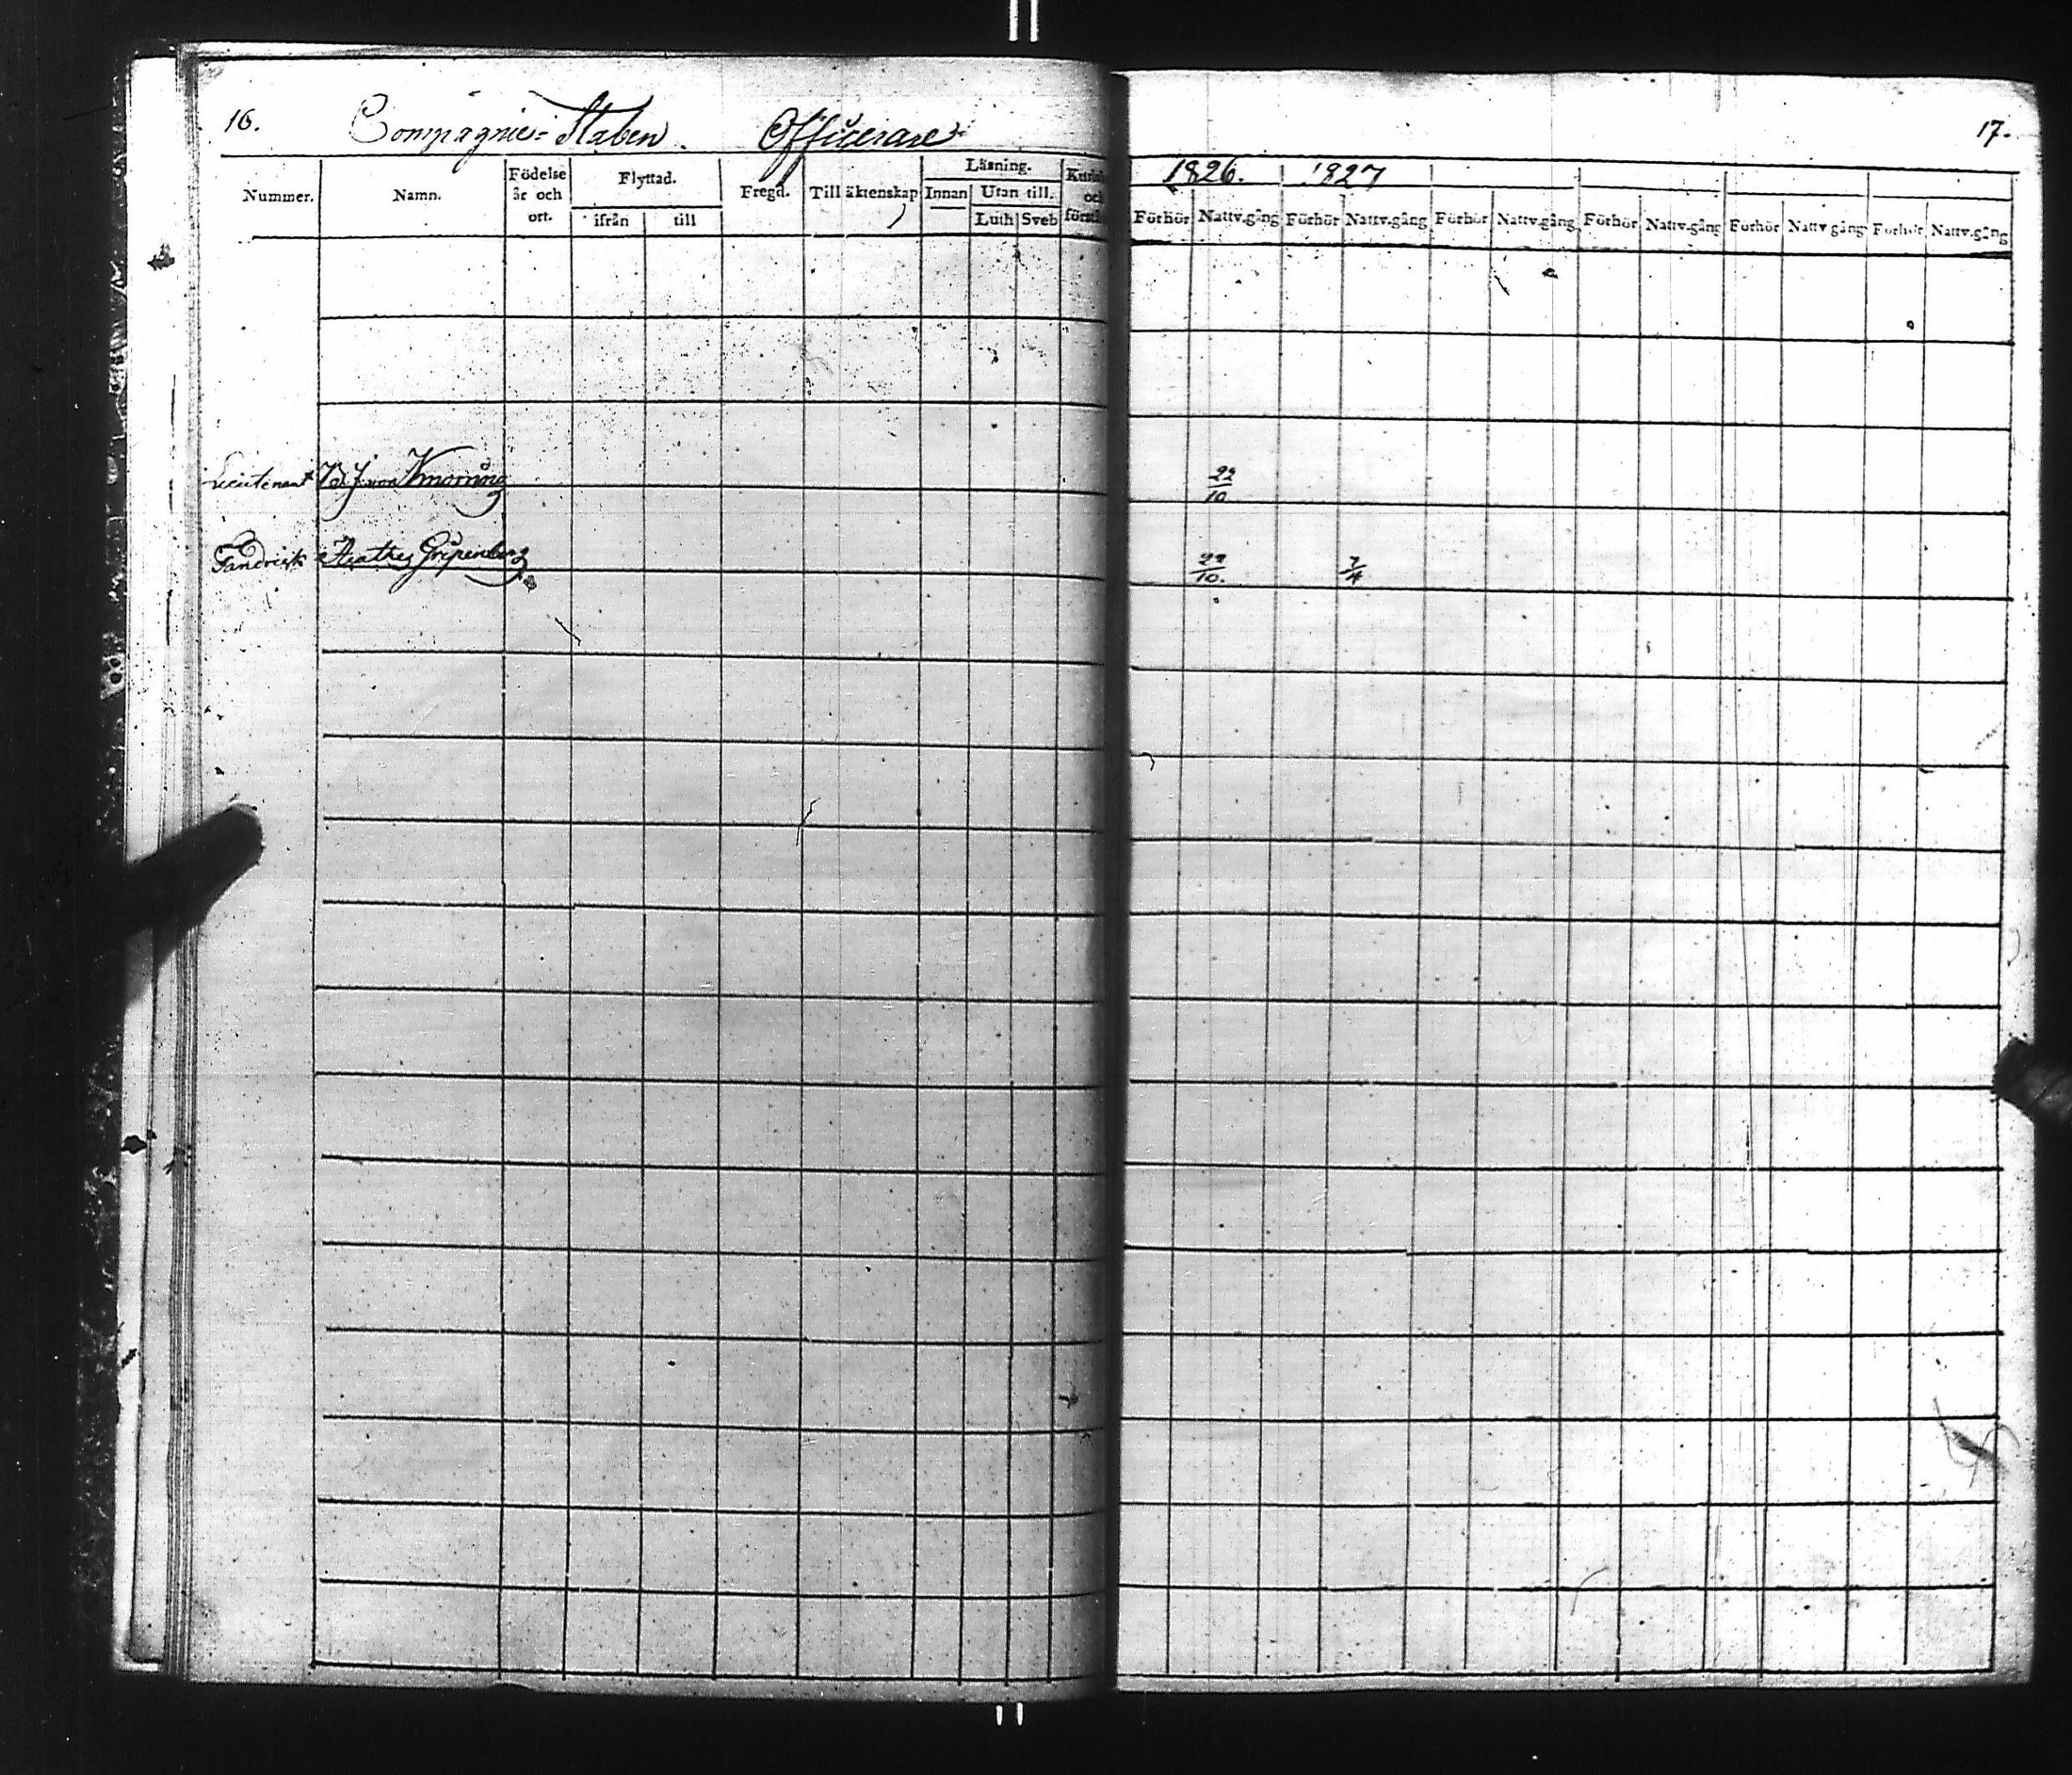 16. Compagnie=Staben. Officerare
17.
Nummer. Namn. Födelse år och ort. Flyttad. ifrån till Fregd. Till äktenskap Läsning. Innan Utan till. Luth Sveb
1826. 1827
Förhör Nattv.gång Förhör Nattv.gång Förhör Nattv.gång Förhör Nattv.gång Förhör Nattv gång Förhör Nattv.gång
Lieutenant B. J. von Knorring 22/10
Fändrick Gripenberg 22/10. 7/4